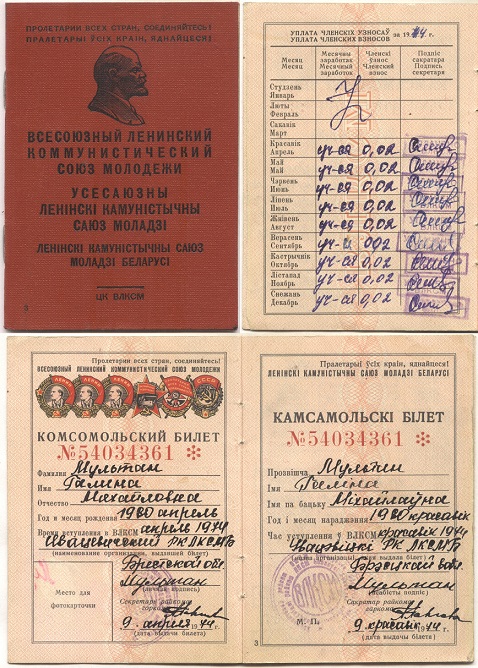 ПРОЛЕТАРИИ ВСЕХ СТРАН, СОЕДИНЯЙТЕСЬ!
ПРАЛЕТАРЫІ ЎСІХ КРАІН, ЯДНАЙЦЕСЯ!
ВСЕСОЮЗНЫЙ ЛЕНИНСКИЙ
КОММУНИСТИЧЕСКИЙ
СОЮЗ МОЛОДЕЖИ
УСЕСАЮЗНЫ
ЛЕНІНСКІ КАМУНІСТЫЧНЫ
САЮЗ МОЛАДЗІ
ЛЕНІНСКІ КАМУНІСТЫЧНЫ САЮЗ
МОЛАДЗІ БЕЛАРУСІ
ЦК ВЛКСМ
УПЛАТА ЧЛЕНСКІХ УЗНОСАЎ
УПЛАТА ЧЛЕНСКИХ ВЗНОСОВ за 1974 г.
Месяц Месячны заработак Членскі ўзнос Подпіс сакратара
Месяц Месячный заработок Членский взнос Подпись секретаря
Студзень
Январь
Люты
Февраль
Сакавік
Март
Красавік
Апрель уч-ся 0,02
Май
Май уч-ся 0,02
Чэрвень
Июнь уч-ся 0,02
Ліпень
Июль уч-ся 0,02
Жнівень
Август уч-ся 0,02
Верасень
Сентябрь уч-ся 0,02
Кастрычнік
Октябрь уч-ся 0,02
Лістапад
Ноябрь уч-ся 0,02
Снежань
Декабрь уч-ся 0,02
Пролетарии всех стран, соединяйтесь!
ВСЕСОЮЗНЫЙ ЛЕНИНСКИЙ КОММУНИСТИЧЕСКИЙ СОЮЗ МОЛОДЕЖИ
КОМСОМОЛЬСКИЙ БИЛЕТ
№54034361
Фамилия Мультан
Имя Галина
Отчество Михайловна
Год и месяц рождения 1960 апрель
Время вступления в ВЛКСМ апрель 1974
Ивацевичский РК ЛКСМБ
(наименование организации, выдавшей билет)
Брестской обл
Мультан
(личная подпись)
Место для
фотокарточки
Секретарь райкома
горкома
9 апреля 1974 г.
(дата выдачи билета)
Пралетарыі ўсіх краін, яднайцеся!
ЛЕНІНСКІ КАМУНІСТЫЧНЫ САЮЗ МОЛАДЗІ БЕЛАРУСІ
КАМСАМОЛЬСКІ БІЛЕТ
№54034361
Прозвішча Мультан
Імя Галіна
Імя па бацьку Міхайлаўна
Год і месяц нараджэння 1960 красавік
Час уступлення ў ВЛКСМ красавік 1974
Івацэвіцкі РК ЛКСМБ
Брэсцкай вобл
Мультан
(асабісты подпіс)
Сакратар райкома
гаркома
М. П.
9 красавік 1974 г.
(дата выдачы білета)
3